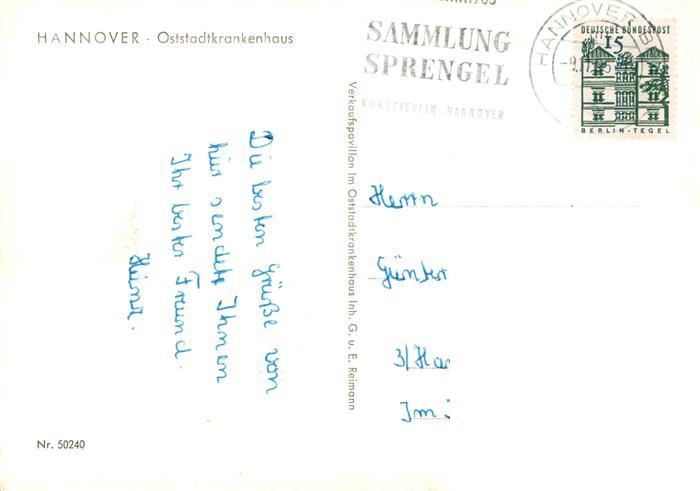 HANNOVER · Oststadtkrankenhaus
SAMMLUNG
SPRENGEL
KUNSTVEREIN HANNOVER
HANNOVER
DEUTSCHE BUNDESPOST
15
BERLIN-TEGEL
Die besten Grüße von
hier sendet Ihnen
Ihr bester Freund.
Verkaufspavillon im Oststadtkrankenhaus Inh. G. u. E. Reimann
Herrn
Günter
3/Ha
Im
Nr. 50240